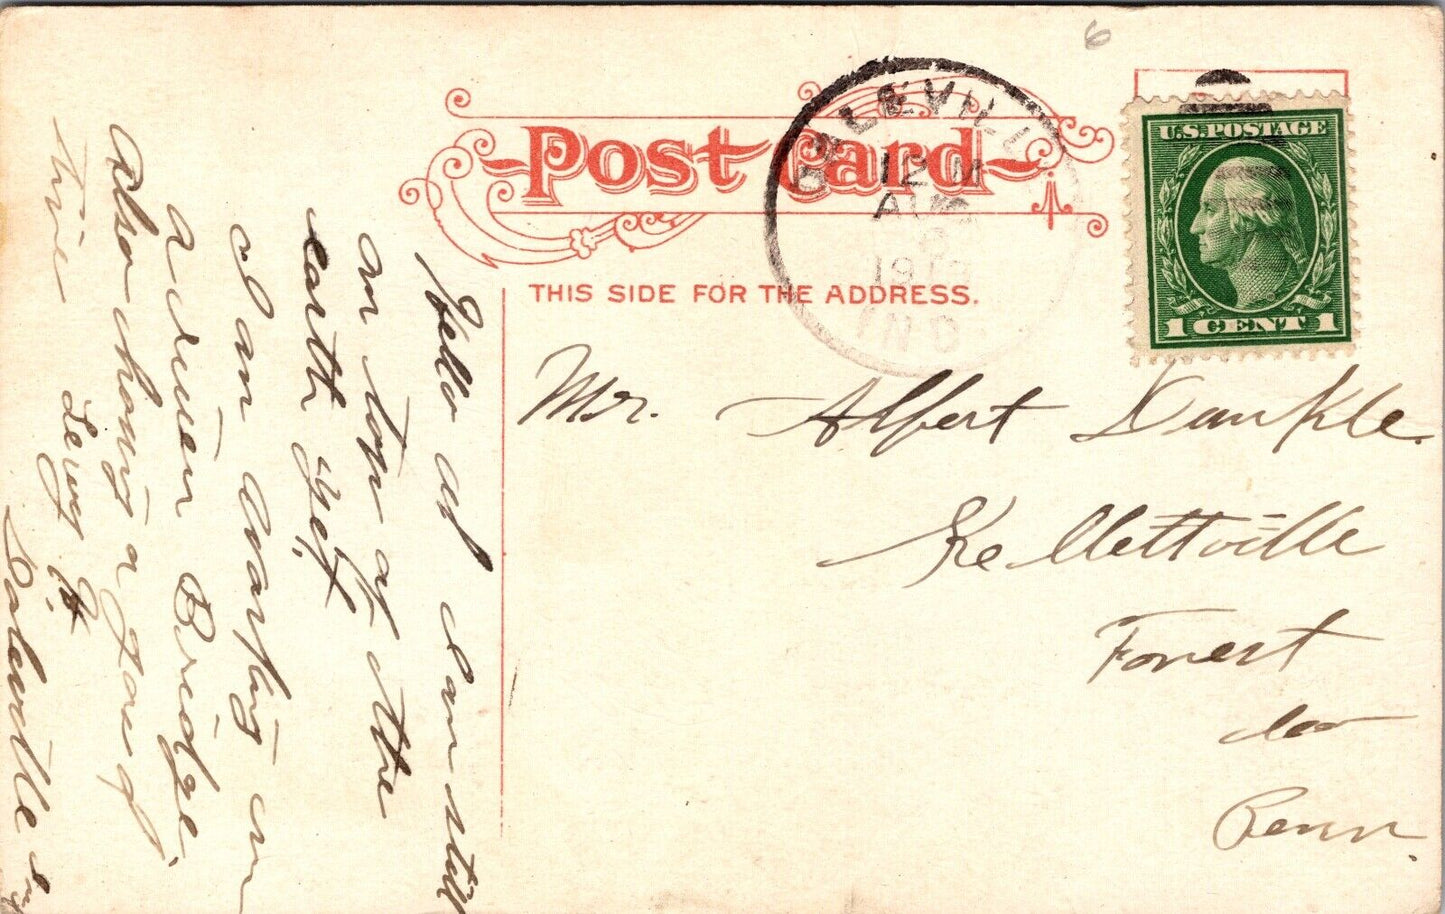 6
Post Card
THIS SIDE FOR THE ADDRESS.
DALEVILLE
12 M
AUG
6
1913
IND
U.S. POSTAGE
1 CENT 1
Mr. Albert Dunkle.
Kellettville
Forest
Co
Penn.
Hello al I am still
on top of the
earth yet
I am working on
a Bridge.
also having a good
time
Daleville Ind